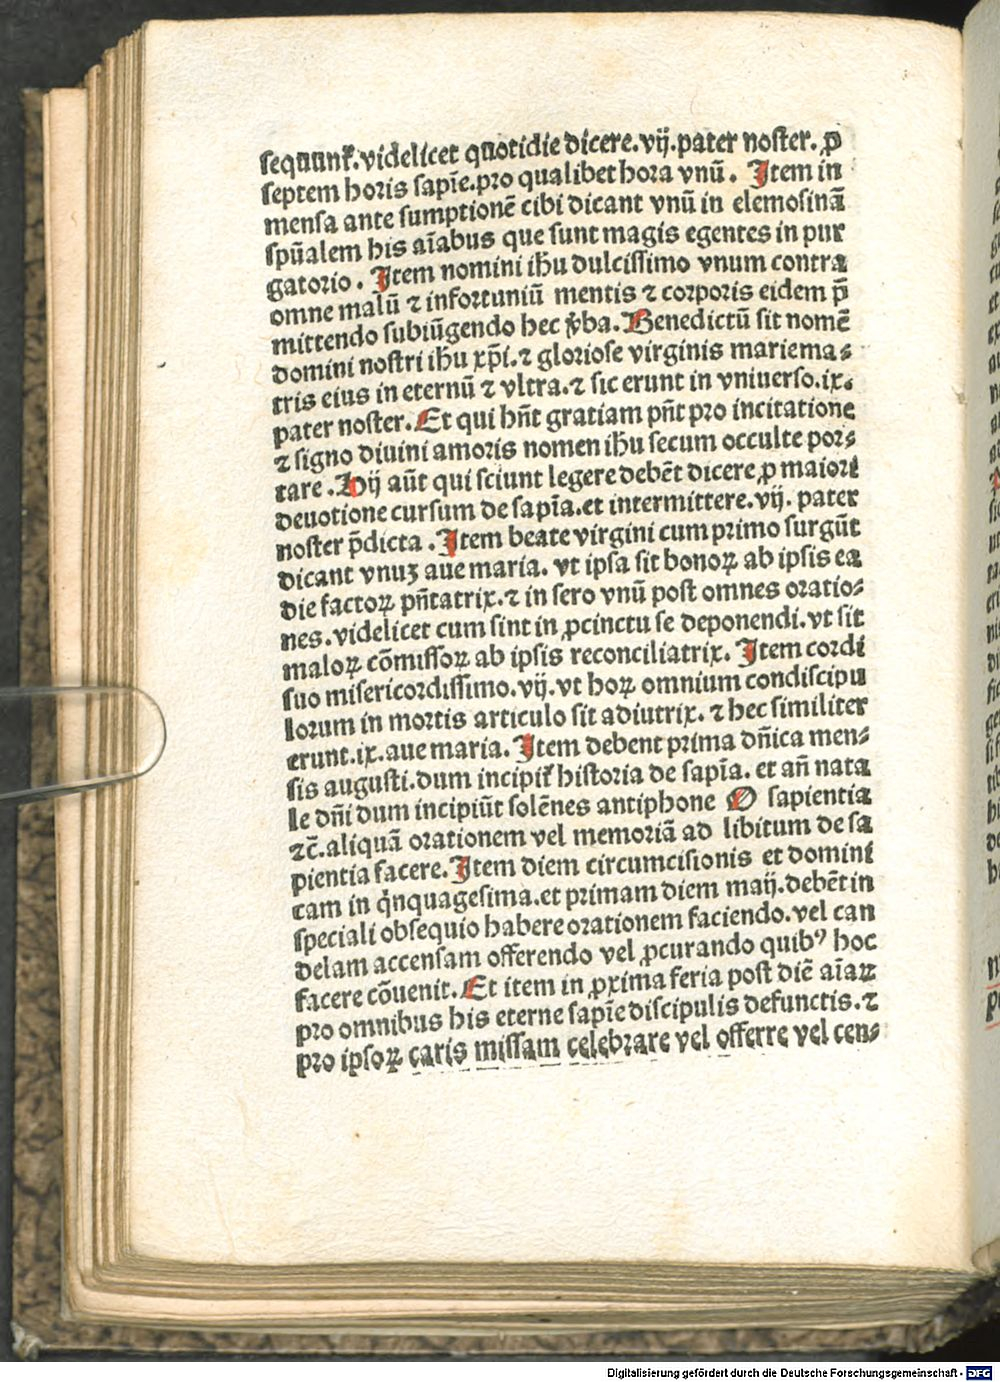 sequunť.videlicet quotidie dicere.vij.pater noster.ꝓ
septem horis sapīe.pro qualibet hora vnū. Item in
mensa ante sumptionē cibi dicant vnū in elemosinā
spūalem his aīabus que sunt magis egentes in pur
gatorio. Item nomini ihu dulcissimo vnum contra
omne malū ⁊ infortuniū mentis ⁊ corporis eidem p̄
mittendo subiūgendo hec ꝟba. Benedictū sit nomē
domini nostri ihu xp̄i.⁊ gloriose virginis marie ma⸗
tris eius in eternū ⁊ vltra.⁊ sic erunt in vniuerso.ix.
pater noster. Et qui hn̄t gratiam pn̄t pro incitatione
⁊ signo diuini amoris nomen ihu secum occulte por⸗
tare. Hij aūt qui sciunt legere debēt dicere ꝓ maiori
deuotione cursum de sapīa.et intermittere.vij. pater
noster p̄dicta. Item beate virgini cum primo surgūt
dicant vnuꝫ aue maria. vt ipsa sit bonoꝝ ab ipsis ea
die factoꝝ pn̄tatrix.⁊ in sero vnū post omnes oratio⸗
nes.videlicet cum sint in ꝓcinctu se deponendi.vt sit
maloꝝ cōmissoꝝ ab ipsis reconciliatrix. Item cordi
suo misericordissimo.vij.vt hoꝝ omnium condiscipu
lorum in mortis articulo sit adiutrix. ⁊ hec similiter
erunt.ix.aue maria. Item debent prima dn̄ica men⸗
sis augusti.dum incipiť historia de sapīa. et an̄ nata
le dn̄i dum incipiūt solēnes antiphone O sapientia
⁊c̄.aliquā orationem vel memoriā ad libitum de sa
pientia facere. Item diem circumcisionis et domini
cam in q̇nquagesima.et primam diem maij.debēt in
speciali obsequio habere orationem faciendo.vel can
delam accensam offerendo vel ꝓcurando quibꝰ hoc
facere cōuenit. Et item in ꝓxima feria post diē aīaꝝ
pro omnibus his eterne sapīe discipulis defunctis.⁊
pro ipsoꝝ caris missam celebrare vel offerre vel cen⸗
Digitalisierung gefördert durch die Deutsche Forschungsgemeinschaft - DFG